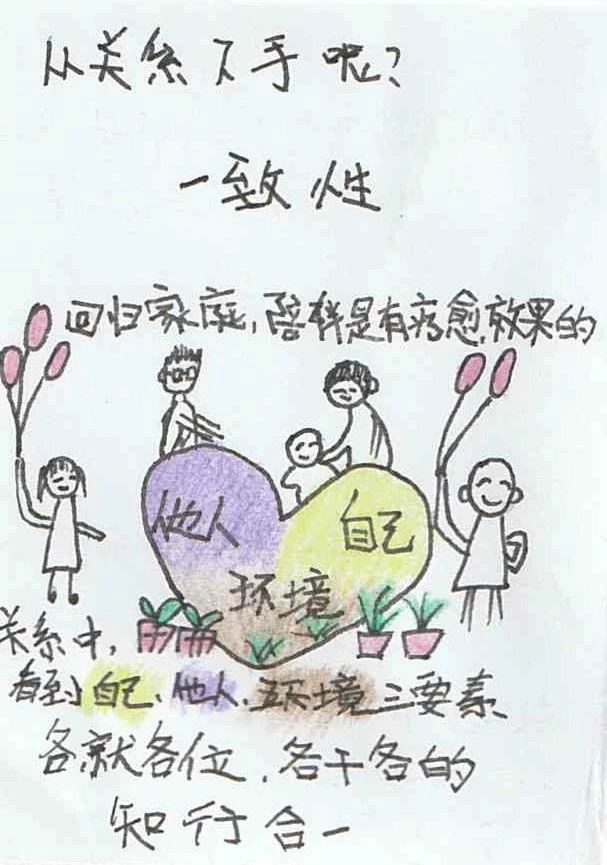 从关系下手呢?
一致性
回归家庭,陪伴是有疗愈效果的
他人
自己
环境
关系中,
看到自己、他人、环境三要素、
各就各位,各干各的
知行合一